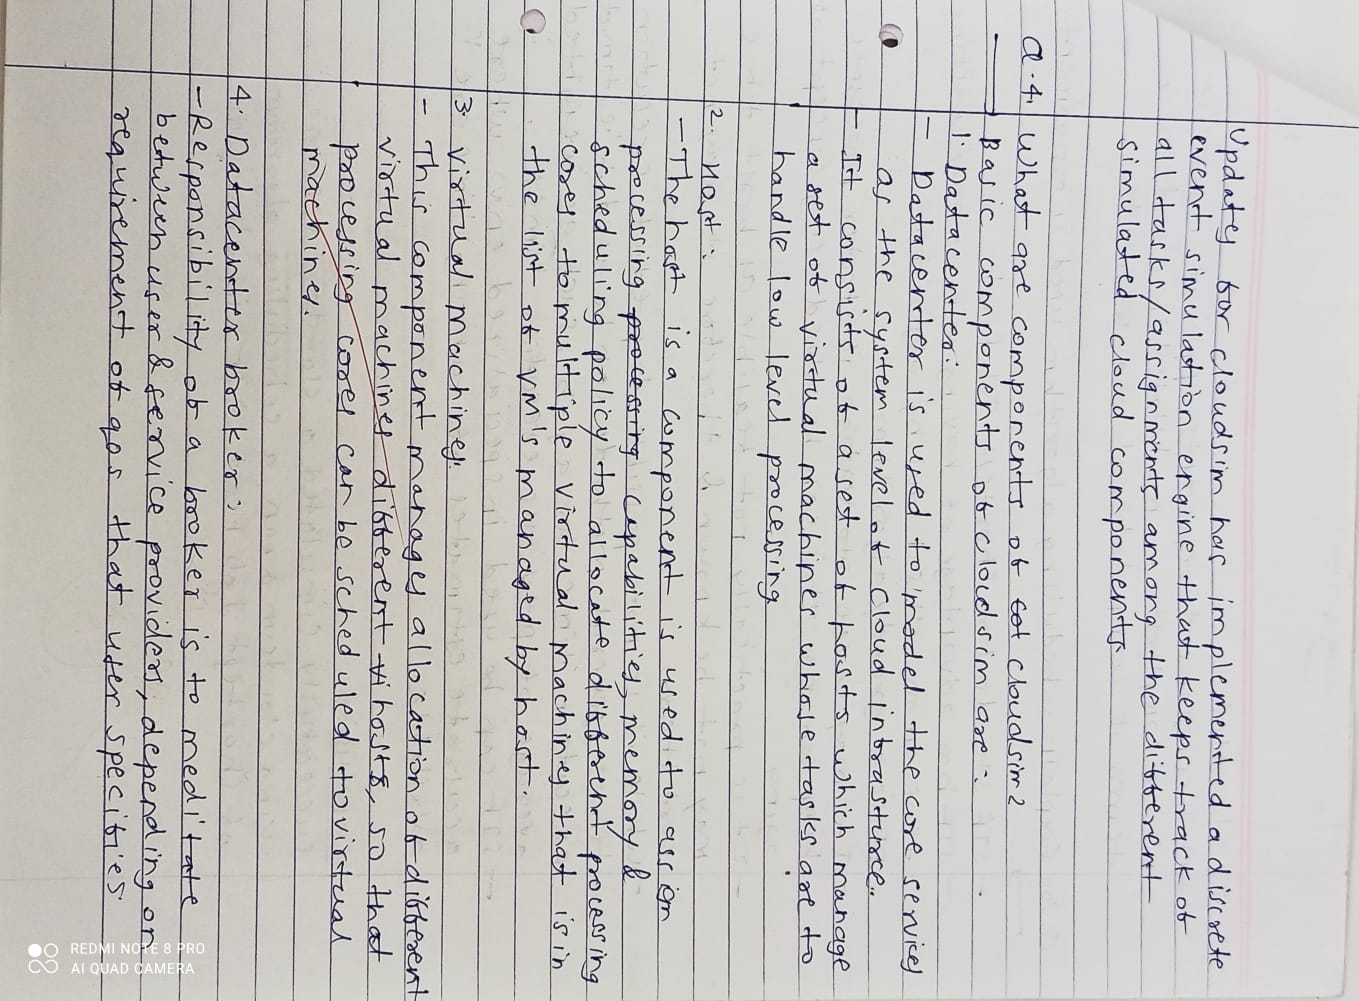 Updates for cloudsim has implemented a discrete
event simulation engine that keeps track of
all tasks/assignments among the different
simulated cloud components
Q.4. What are components of cloudsim?
Basic components of cloudsim are:
1. Datacenter:
- Datacenter is used to model the core services
as the system level of cloud infrasturce.
- It consists of a set of hosts which manage
a set of virtual machines whose tasks are to
handle low level processing
2. Host:
- The host is a component is used to assign
processing processing capabilities, memory &
scheduling policy to allocate different processing
cores to multiple virtual machines that is in
the list of VM's managed by host.
3. virtual machines.
- This component manages allocation of different
virtual machines different hosts, so that
processing cores can be scheduled to virtual
machines.
4. Datacenter broker:
- Responsibility of a broker is to meditate
between user & service providers, depending on
requirement of qos that user specifies
REDMI NOTE 8 PRO
AI QUAD CAMERA